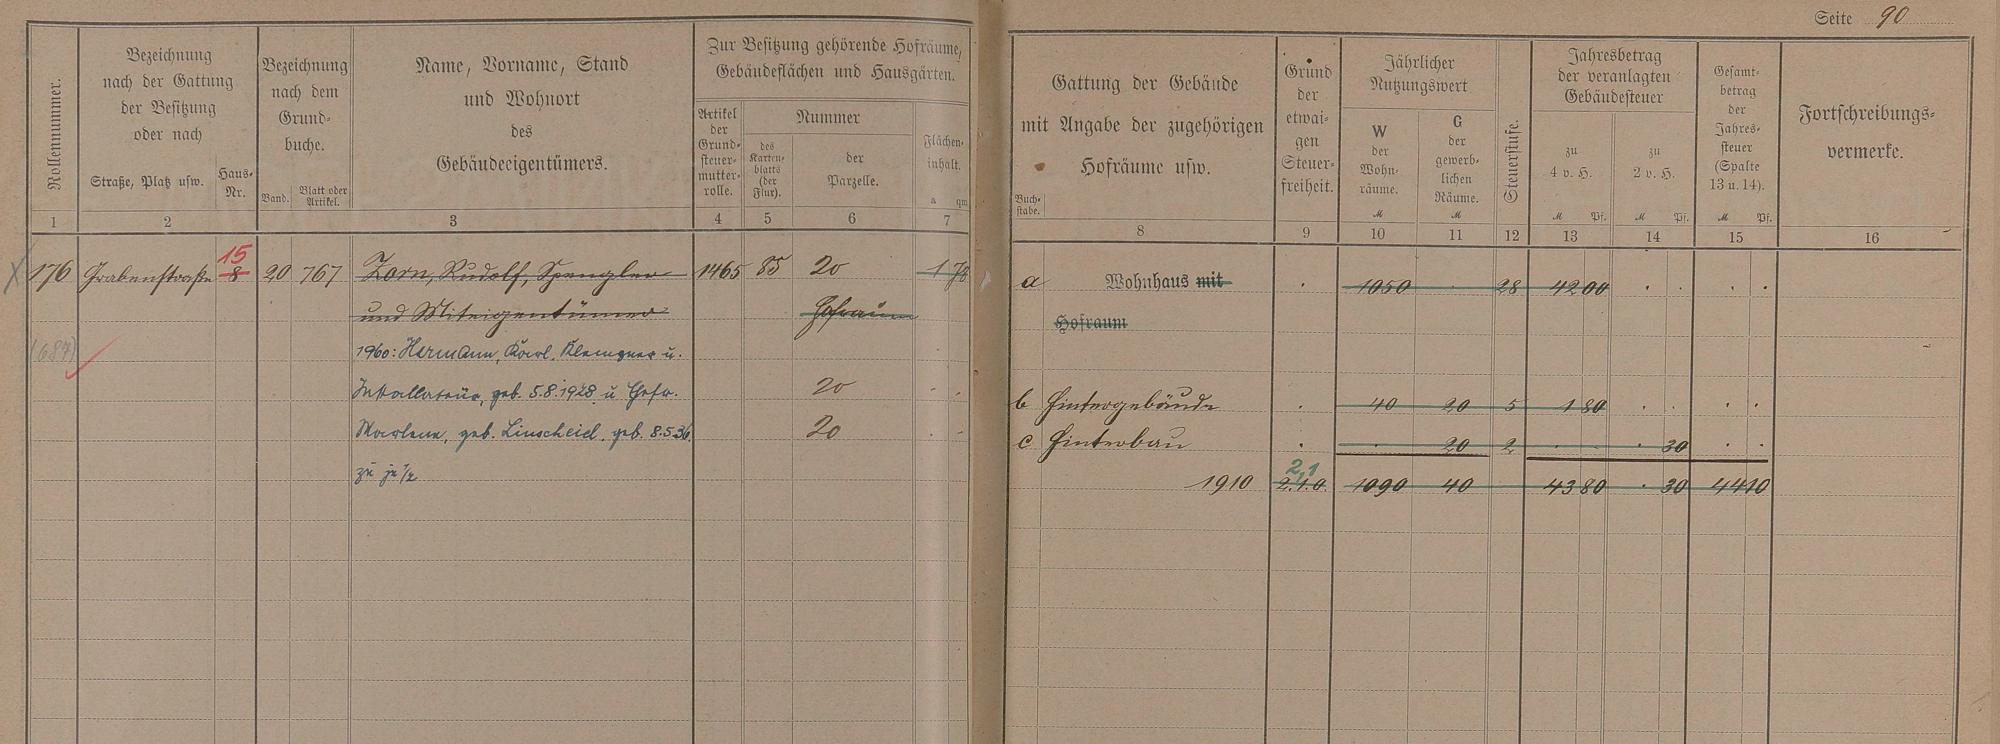 Seite 90
Rollennummer.
Bezeichnung
nach der Gattung
der Besitzung
oder nach
Straße, Platz usw.
Haus-
Nr.
Bezeichnung
nach dem
Grund-
buche.
Band.
Blatt oder
Artikel.
Name, Vorname, Stand
und Wohnort
des
Gebäudeeigentümers.
Zur Besitzung gehörende Hofräume,
Gebäudeflächen und Hausgärten.
Artikel
der
Grund-
steuer-
mutter-
rolle.
Nummer
des
Karten-
blatts
(der
Flur).
der
Parzelle.
Flächen-
inhalt.
a qm
Gattung der Gebäude
mit Angabe der zugehörigen
Hofräume usw.
Buch-
stabe.
Grund
der
etwai-
gen
Steuer-
freiheit.
Jährlicher
Nutzungswert
W
der
Wohn-
räume.
M
G
der
gewerb-
lichen
Räume.
M
Steuerstufe.
Jahresbetrag
der veranlagten
Gebäudesteuer
zu
4 v. H.
M Pf.
zu
2 v. H.
M Pf.
Gesamt-
betrag
der
Jahres-
steuer
(Spalte
13 u. 14).
M Pf.
Fortschreibungs-
vermerke.
1 2 3 4 5 6 7 8 9 10 11 12 13 14 15 16
15
X 176 Grabenstraße 8 20 767 Zorn, Rudolf, Spengler 1465 85 20 1 78 a Wohnhaus mit 1050 28 42 00
und Miteigentümer Hofraum Hofraum
(687) 1960: Hermann, Karl, Klempner u.
Installateur, geb. 5.8.1928 u Ehefr. 20 b Hintergebäude 40 20 5 1 80
Marlene, geb. Linscheid, geb. 8.5.36 20 c Hinterbau 20 2 30
zu je 1/2
2,1
1910 2.1.0. 1090 40 43 80 30 44 10